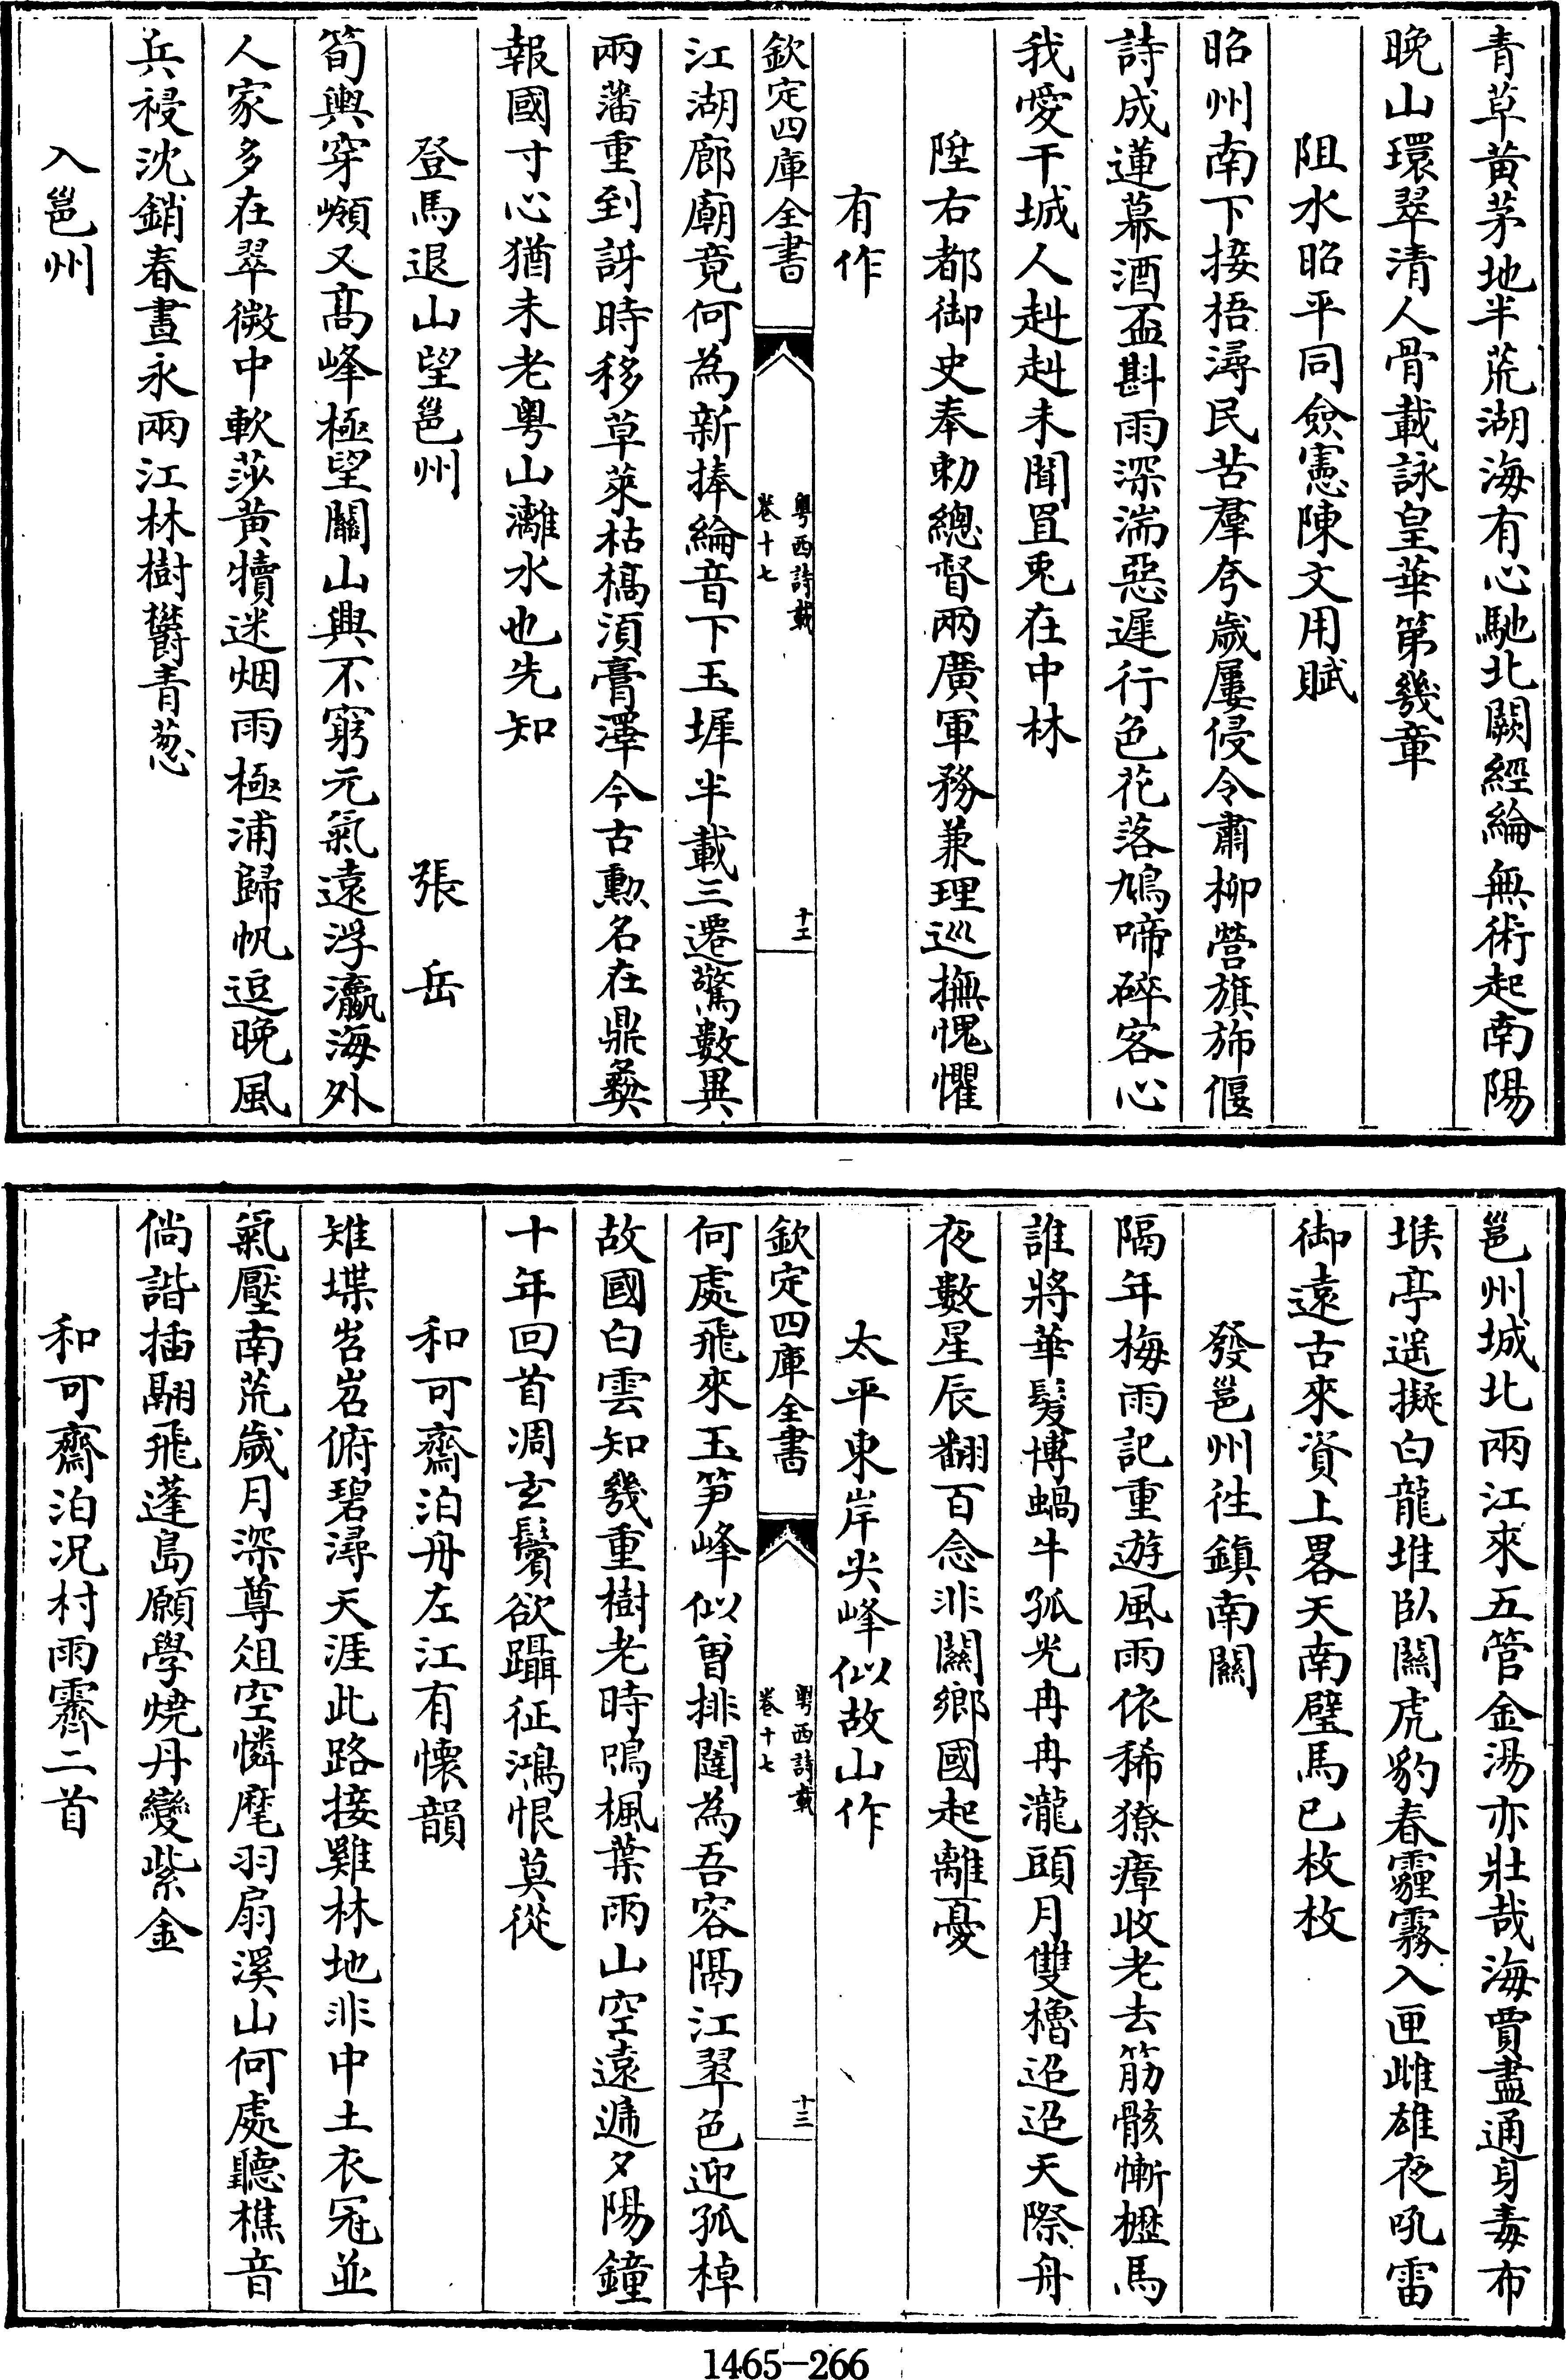 青草黄茅地半荒湖海有心馳北闕經綸無術起南陽
晚山環翠清人骨載詠皇華第幾章
阻水昭平同僉憲陳文用賦
昭州南下接梧潯民苦羣夸歲屢侵令肅柳營旗斾偃
詩成蓮幕酒盃斟雨深湍惡遲行色花落鳩啼碎客心
我愛干城人赳赳未聞罝兎在中林
陞右都御史奉勅總督兩廣軍務兼理巡撫愧懼
有作
欽定四庫全書
粵西詩載
卷十七
十二
江湖廊廟竟何為新捧綸音下玉墀半載三遷驚數異
兩藩重到訝時移草萊枯槁湏膏澤今古勲名在鼎彝
報國寸心猶未老粵山灕水也先知
登馬退山望邕州
張岳
筍輿穿嶺又髙峰極望關山興不窮元氣遠浮瀛海外
人家多在翠微中軟莎黄犢迷烟雨極浦歸帆逗晚風
兵祲沈銷春晝永兩江林樹欝青葱
入邕州
邕州城北兩江來五管金湯亦壯哉海賈盡通身毒布
堠亭遥擬白龍堆卧關虎豹春霾霧入匣雌雄夜吼雷
御遠古來資上畧天南璧馬已枚枚
發邕州徃鎮南關
隔年梅雨記重遊風雨依稀獠瘴收老去筋骸慚櫪馬
誰將華髮博蝸牛孤光冉冉瀧頭月雙櫓迢迢天際舟
夜數星辰翻百念非關鄉國起離憂
太平東岸尖峰似故山作
欽定四庫全書
粵西詩載
卷十七
十三
何處飛來玉笋峰似曽排闥為吾容隔江翠色迎孤棹
故國白雲知幾重樹老時鳴楓葉雨山空遠遞夕陽鐘
十年回首凋玄鬢欲躡征鴻恨莫從
和可齋泊舟左江有懷韻
雉堞岧岧俯碧潯天涯此路接雞林地非中土衣冠並
氣壓南荒歲月深尊俎空憐麾羽扇溪山何處聽樵音
倘諧插翮飛蓬島願學燒丹變紫金
和可齋泊况村雨霽二首
1465-266